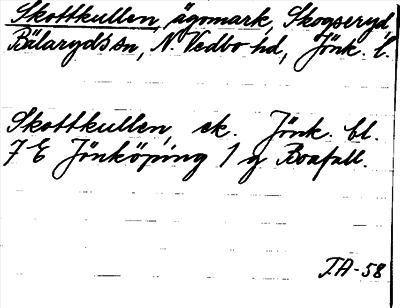 Skottkullen, ägomark, Skogseryd,
Bälaryds sn, N. Vedbo hd, Jönk. l.
Skottkullen, ek. Jönk. bl.
7 E Jönköping 1 g Boafall.
J.A-58